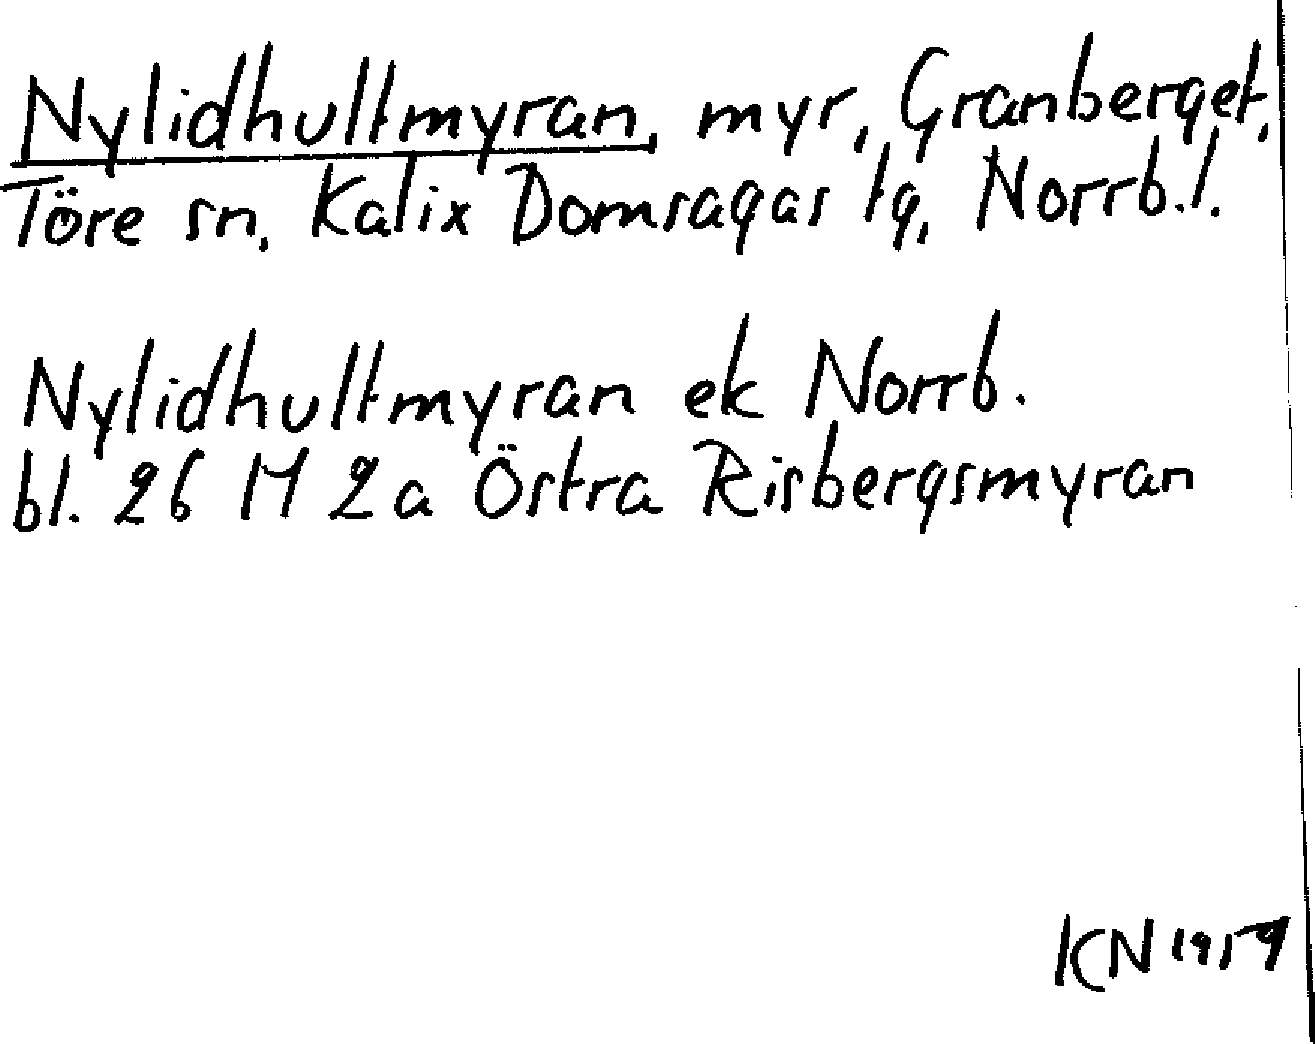 Nylidhultmyran, myr, Granberget,
Töre sn, Kalix Domsagas tg, Norrb.l.
Nylidhultmyran ek Norrb.
bl. 26 M 2a Östra Risbergsmyran
KN 1959